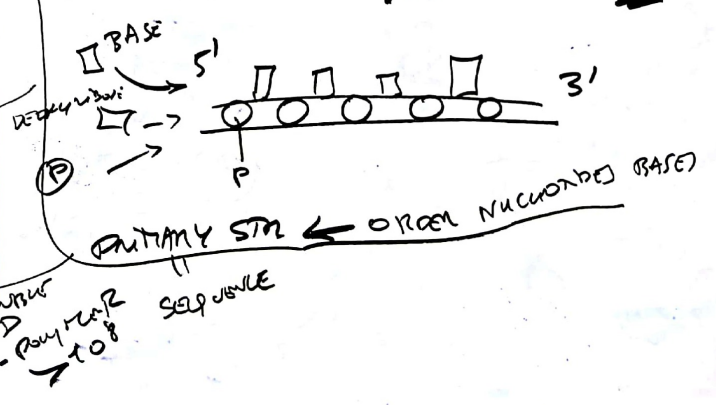 BASE
5'
3'
P
P
PRIMARY STR ← ORDER NUCLEOTIDES BASES
||
SEQUENCE
POLYMER
10⁸